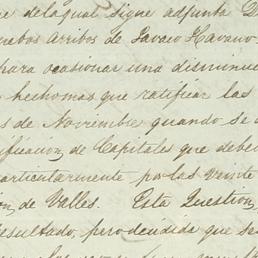 de la qual sigue adjunta
arribos de
para ocasionar una disminuc
hecho mas que ratificar las
s de Noviembre quando se
ificacion de Capitales que deben
articularmente por las veinte
on de Valles. Esta Question,
esultado, pero decidida que sea